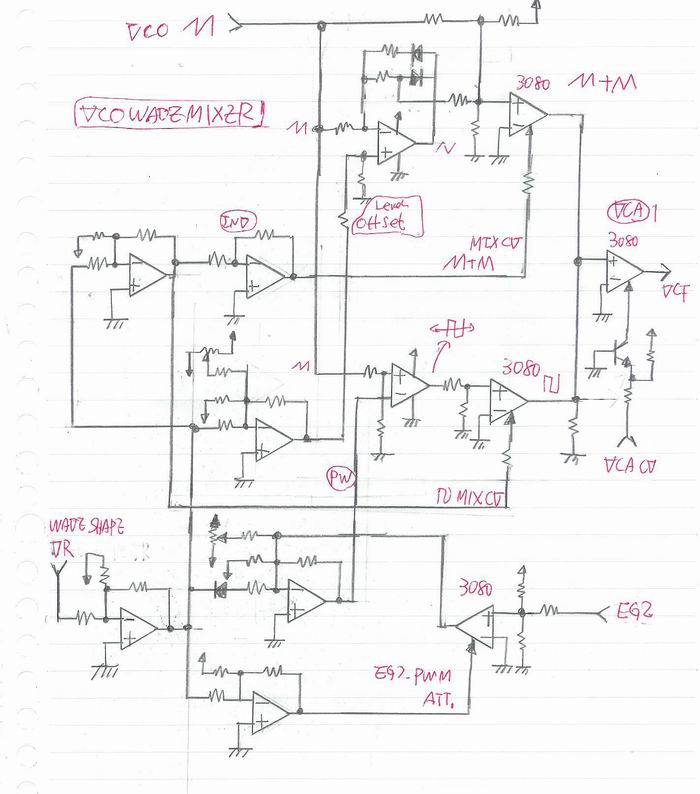 VCO
VCO WAVE MIXER
3080
M+M
Level
Offset
IND
VCA 1
3080
MIX CV
M+M
VCF
3080
VCA CV
PW
MIX CV
WAVE SHAPE
VR
3080
EG2
EG2-PWM
ATT.